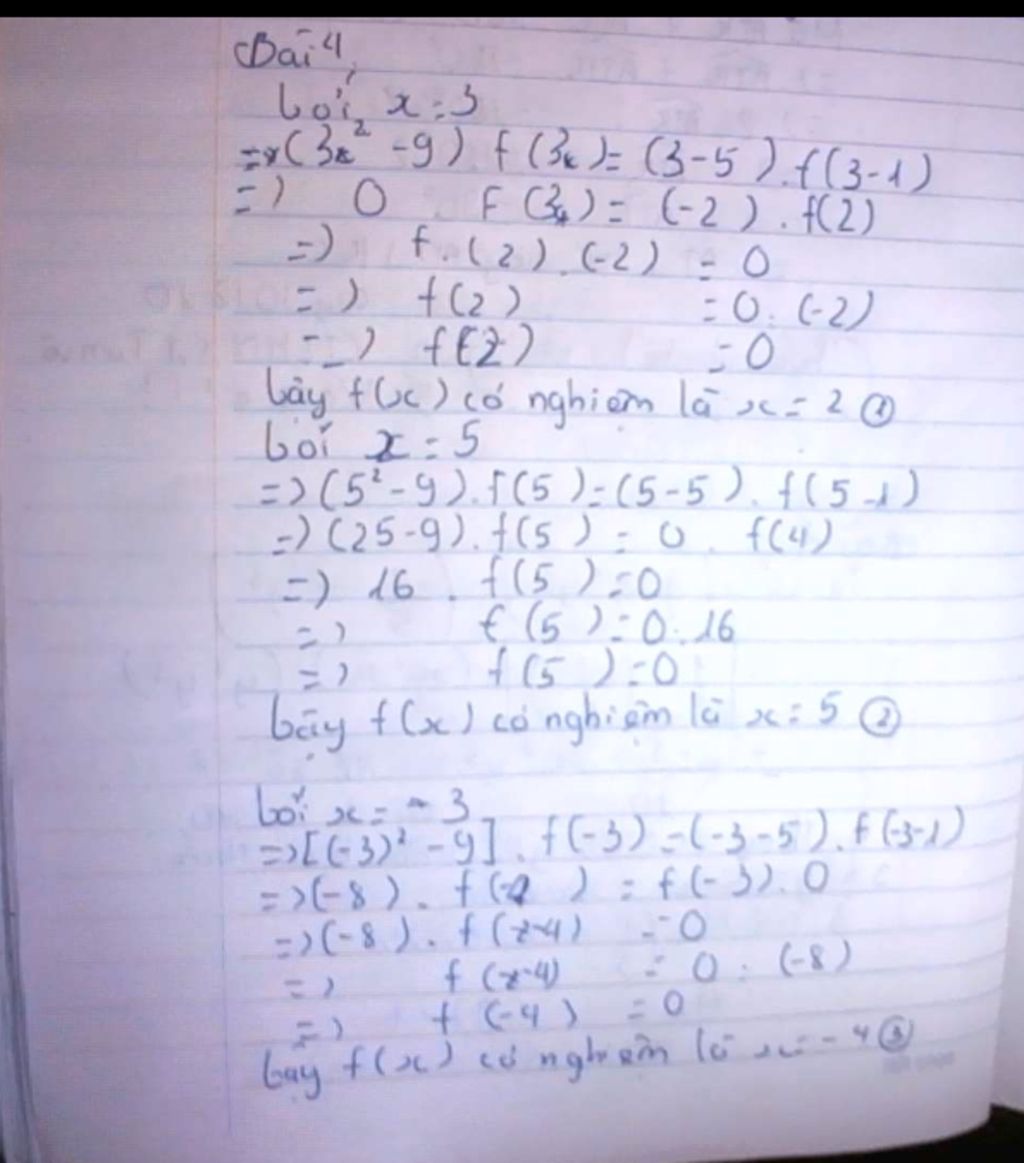 Bài 4,
Với x = 3
=> (3² - 9) f(3) = (3 - 5) . f(3 - 1)
=> 0 f(3) = (-2) . f(2)
=> f . (2) . (-2) = 0
=> f(2) = 0 : (-2)
=> f(2) = 0
Vậy f(x) có nghiệm là x = 2 ①
Với x = 5
=> (5² - 9) . f(5) = (5 - 5) . f(5 - 1)
=> (25 - 9) . f(5) = 0 . f(4)
=> 16 . f(5) = 0
=> f(5) = 0 : 16
=> f(5) = 0
Vậy f(x) có nghiệm là x = 5 ②
Với x = -3
=> [(-3)² - 9] . f(-3) = (-3 - 5) . f(-3 - 1)
=> (-8) . f( ) = f(-3) . 0
=> (-8) . f(-4) = 0
=> f(-4) = 0 : (-8)
=> f(-4) = 0
Vậy f(x) có nghiệm là x = -4 ③